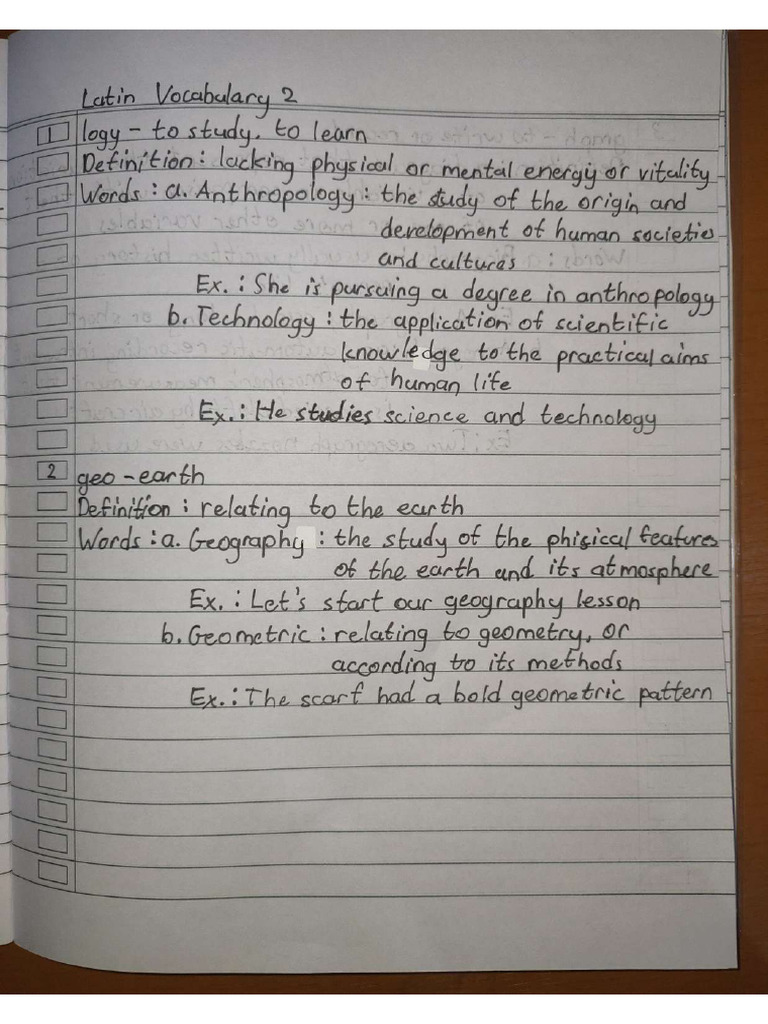 Latin Vocabulary 2
1 logy - to study, to learn
Definition : lacking physical or mental energy or vitality
Words : a. Anthropology : the study of the origin and
development of human societies
and culturas
Ex. : She is pursuing a degree in anthropology
b. Technology : the application of scientific
knowledge to the practical aims
of human life
Ex. : He studies science and technology
2 geo - earth
Definition : relating to the earth
Words : a. Geography : the study of the phisical features
of the earth and its atmosphere
Ex. : Let's start our geography lesson
b. Geometric : relating to geometry, or
according to its methods
Ex. : The scarf had a bold geometric pattern